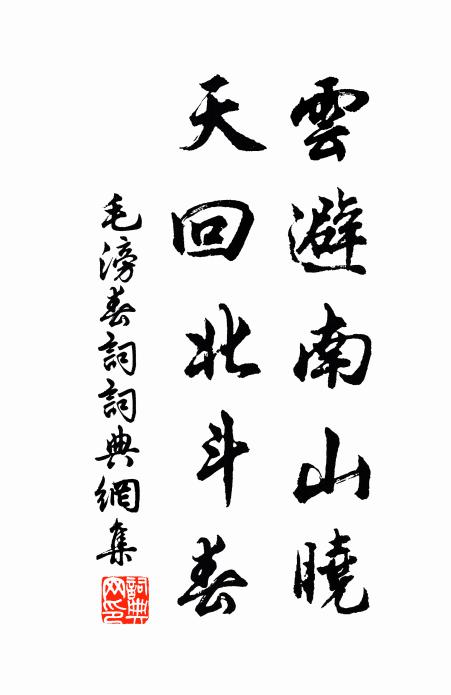 雲避南山曉
天回北斗春
毛滂春詞詞典網集
詞典網印